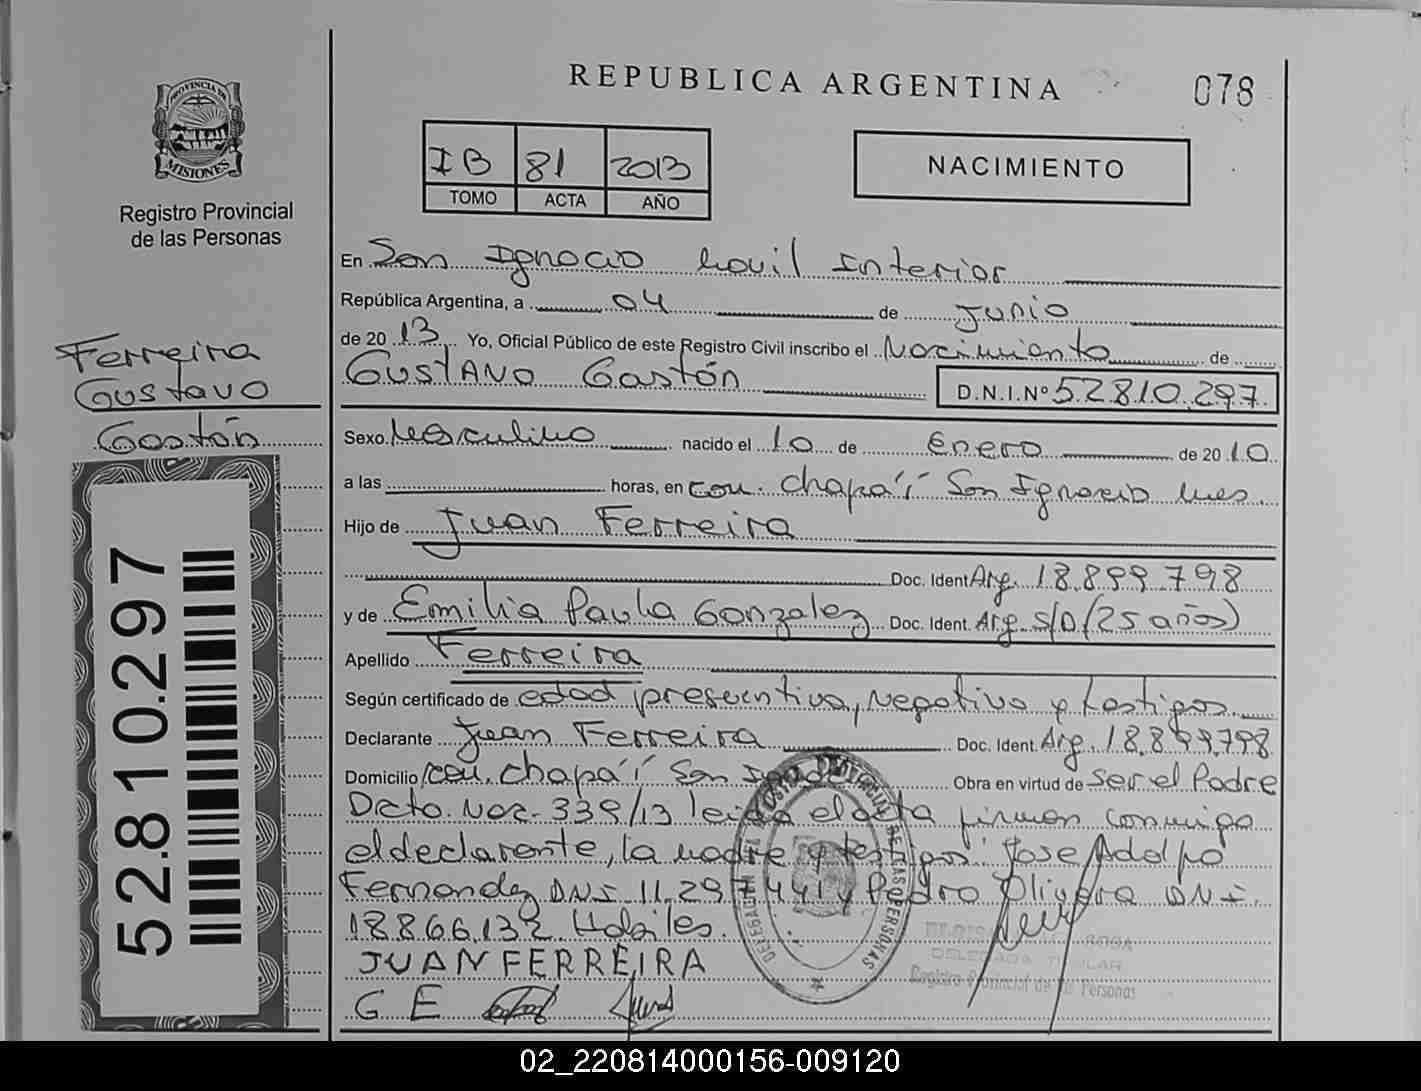 REPUBLICA ARGENTINA
078
PROVINCIA DE
MISIONES
Registro Provincial
de las Personas
IB 81 2013
TOMO ACTA AÑO
NACIMIENTO
En San Ignacio Movil Interior
República Argentina, a 04 de Junio
de 20 13 Yo, Oficial Público de este Registro Civil inscribo el Nacimiento de
GUSTAVO Gastón D.N.I.Nº 52.810.297
Ferreira
Gustavo
Gastón
52.810.297
Sexo Masculino nacido el 10 de Enero de 20 10
a las horas, en com. chapa'í San Ignacio Mes.
Hijo de Juan Ferreira
Doc. Ident Arg. 18.899.798
y de Emilia Paula Gonzalez Doc. Ident. Arg. S/D (25 años)
Apellido Ferreira
Según certificado de edad presuntiva, Negativa y testigos.
Declarante Juan Ferreira Doc. Ident. Arg. 18.899.798
Domicilio com. chapa'í San Obra en virtud de ser el Padre
Dcto. Nac. 339/13 leida el acta firman conmigo
el declarante, la madre y testigos: Jose Adolfo
Fernandez DNI 11.297.441 y Pedro Olivera DNI.
18866.132 Habiles.
JUAN FERREIRA
G E
DELEGADA TITULAR
Registro Provincial de las Personas
02_220814000156-009120